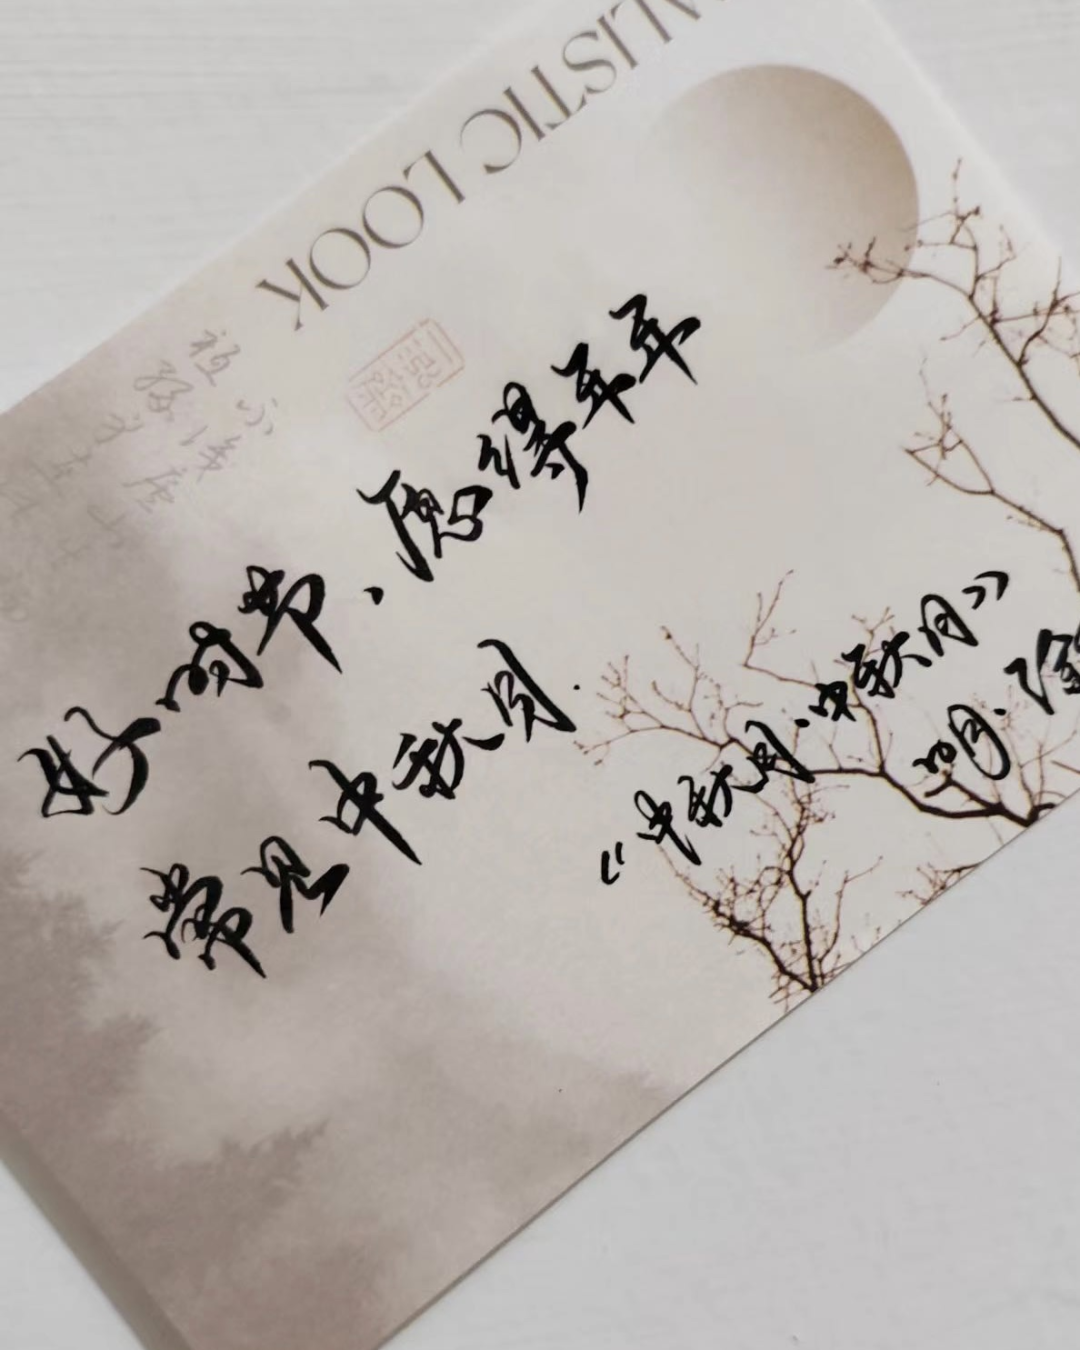 ALISTIC LOOK
好时节、愿得年年
常见中秋月.
《中秋月·中秋月》
明·徐